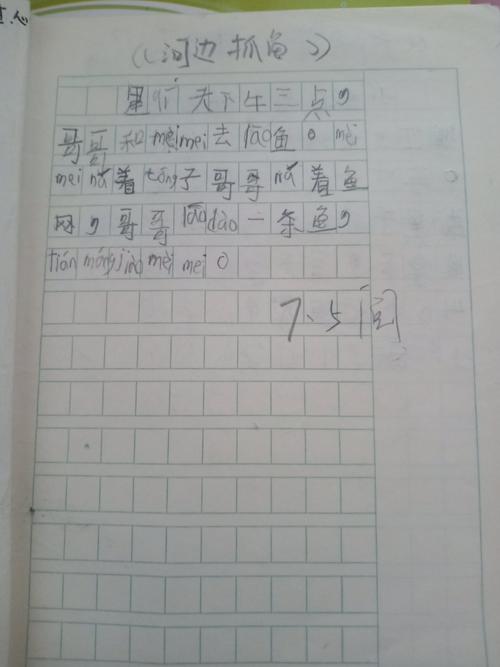 《河边抓鱼》
下午三点，
哥哥和mèimei去lāo鱼。mèi
mei ná着tǒng子哥哥ná着鱼
网，哥哥lāo dào一条鱼，
lián máng jiào mèi mei。
7.5阅